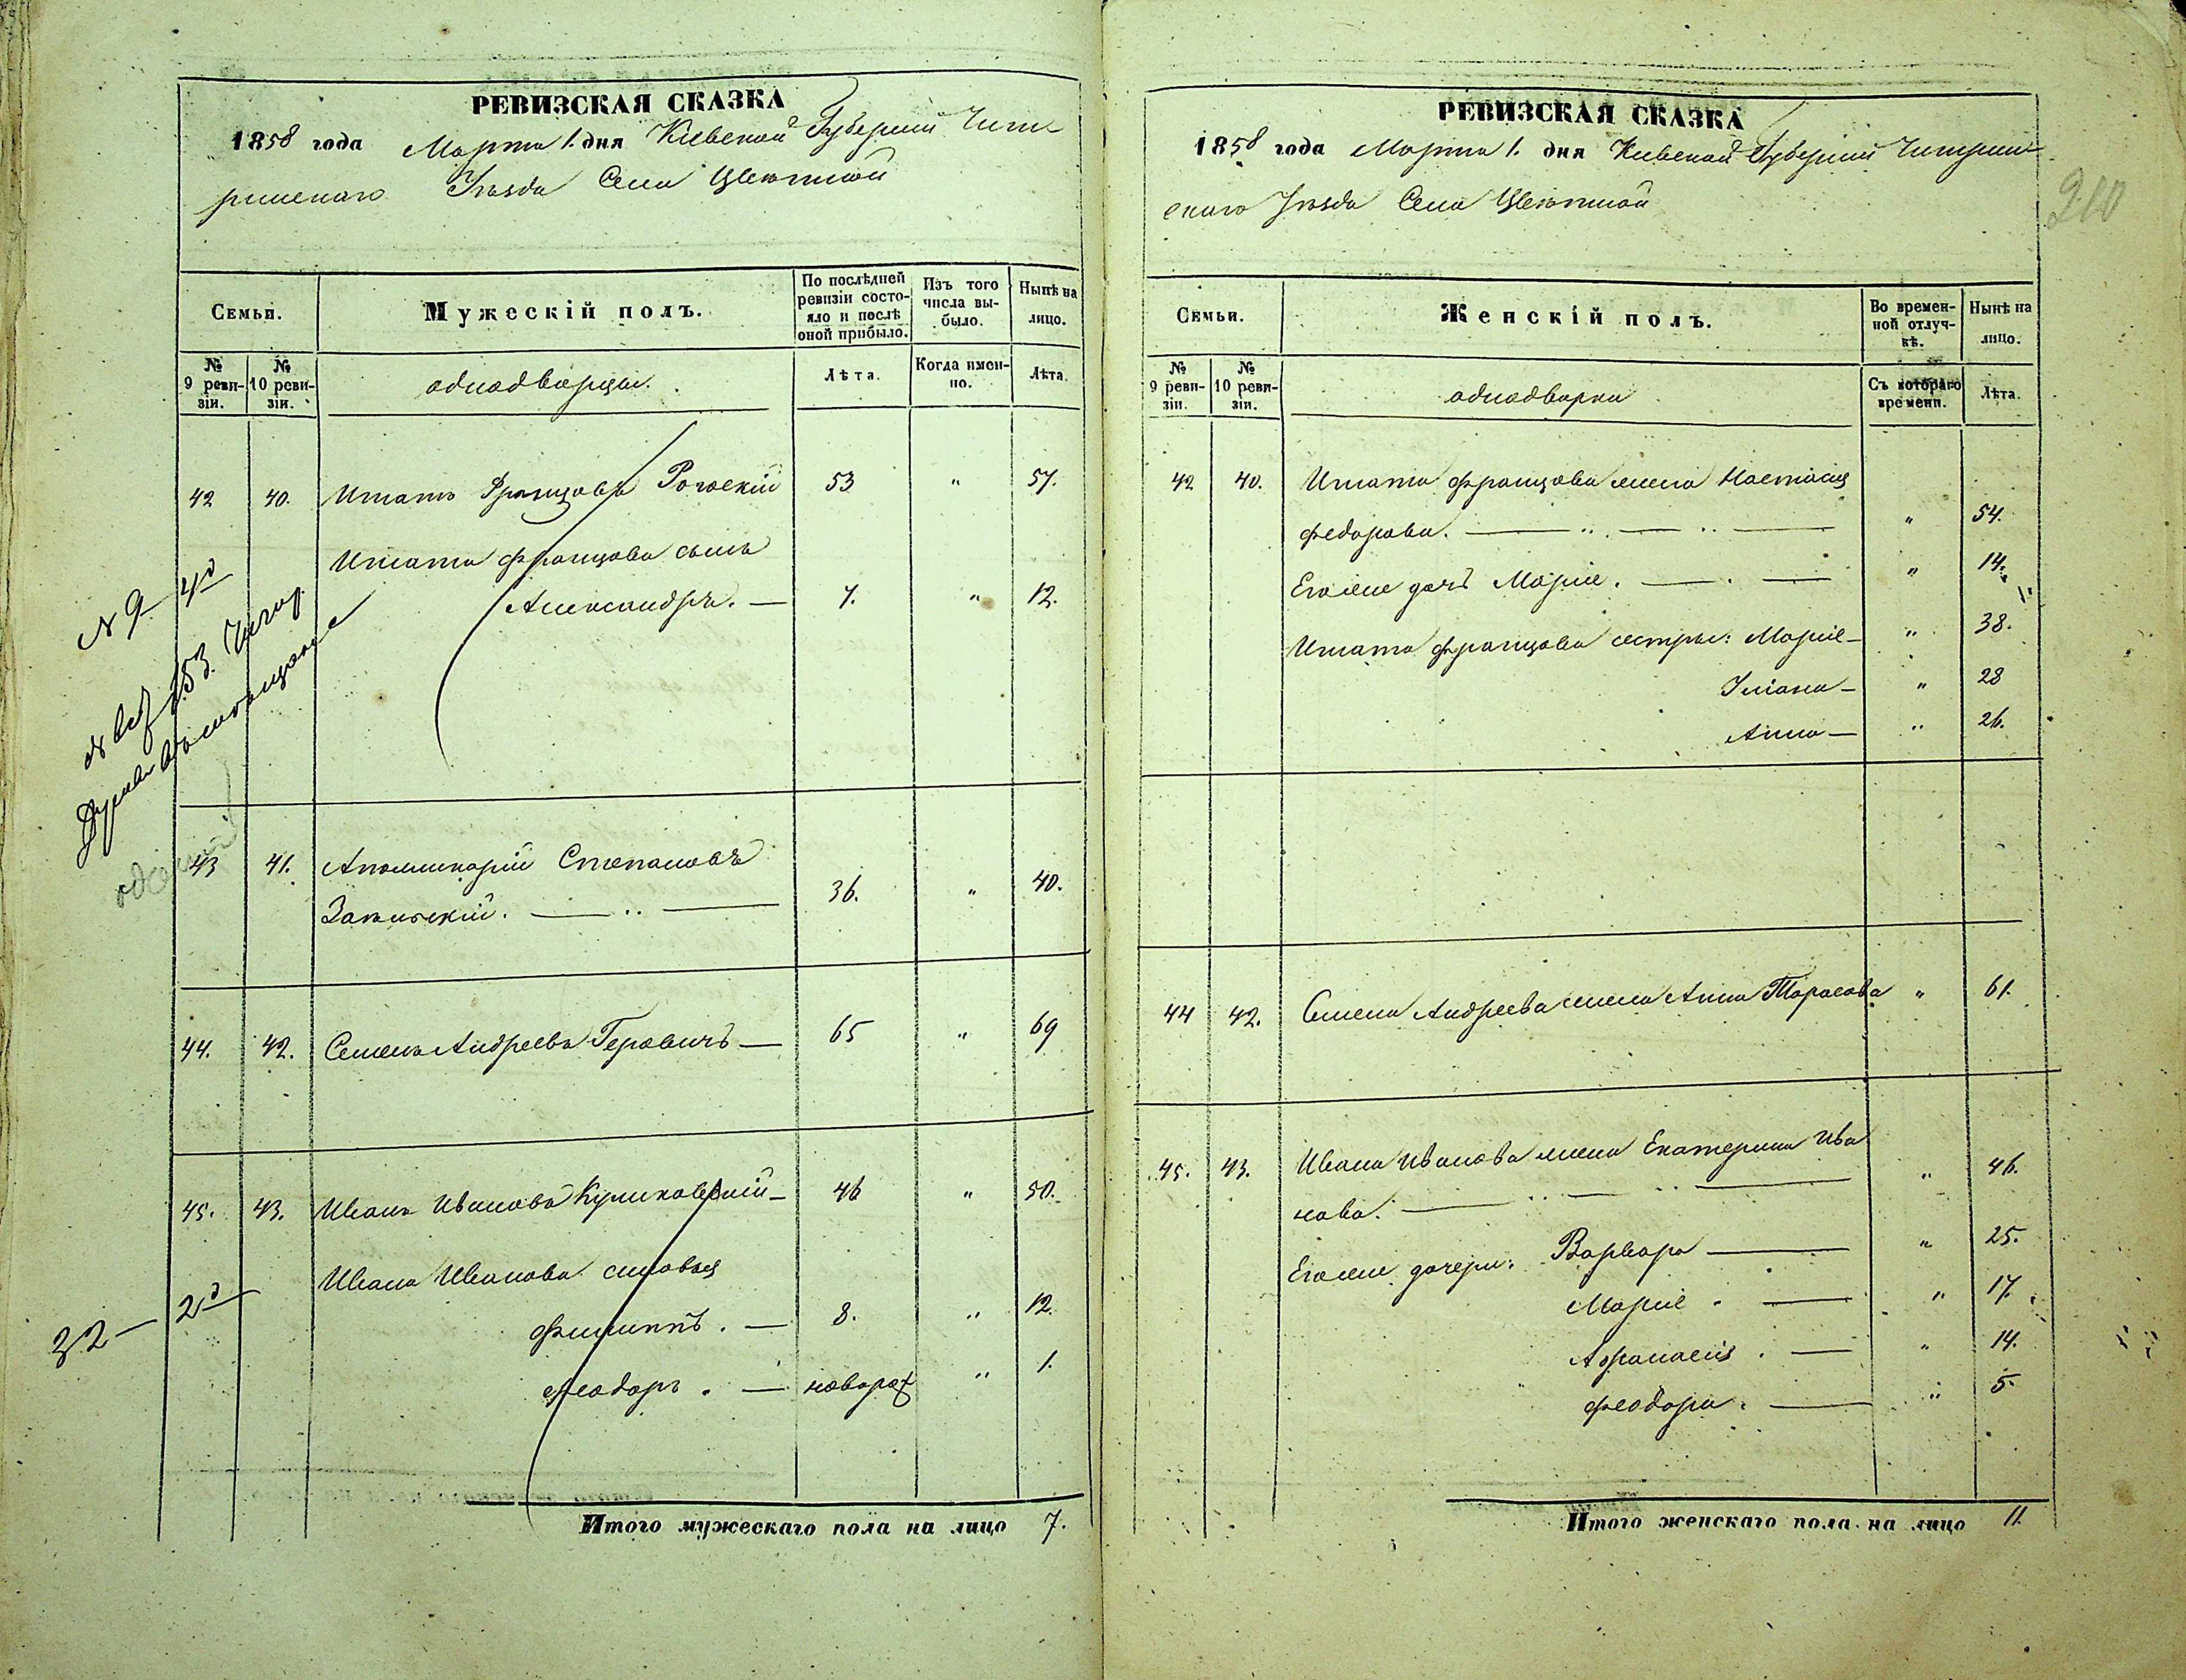 РЕВИЗСКАЯ СКАЗКА
1858 года Марта 1. дня Кіевской Губерніи Чиги
ринскаго Уѣзда Села Цвѣтной
Семьи.
Мужескій полъ.
По послѣдней ревизіи состояло и послѣ оной прибыло.
Изъ того числа выбыло.
Нынѣ на лицо.
№ 9 ревизіи.
№ 10 ревизіи.
однодворцы.
Лѣта.
Когда именно.
Лѣта.
42 40. Игнатъ Францовъ Рогоскій 53 " 57.
Игната Францова сынъ
Александръ. — 7. " 12.
№ 9 4д
43 41. Аполинарій Степановъ
Закинскій. — 36. " 40.
44. 42. Семенъ Андреевъ Геровичъ — 65 " 69
45. 43. Иванъ Ивановъ Куликовскій — 46 " 50.
Ивана Иванова сыновья
Филиппъ. — 8. " 12.
Феодоръ. — новорож " 1.
32 — 2д
Итого мужескаго пола на лицо 7.
РЕВИЗСКАЯ СКАЗКА
1858 года Марта 1. дня Кіевской Губерніи Чигирин
скаго Уѣзда Села Цвѣтной
210
Семьи.
Женскій полъ.
Во временной отлучкѣ.
Нынѣ на лицо.
№ 9 ревизіи.
№ 10 ревизіи.
однодворки
Съ котораго времени.
Лѣта.
42 40. Игната Францова жена Настасія
Федорова. — " 54.
Его же дочь Марія. — " 14.
Игната Францова сестры: Марія — " 38.
Уліана — " 28
Анна — " 26.
44 42. Семена Андреева жена Анна Тарасова " 61.
45. 43. Ивана Иванова жена Екатерина Ива
нова. — " 46.
Его же дочери: Варвара — " 25.
Марія. — " 17.
Афанасія. — " 14.
Феодора. — " 5.
Итого женскаго пола на лицо 11.